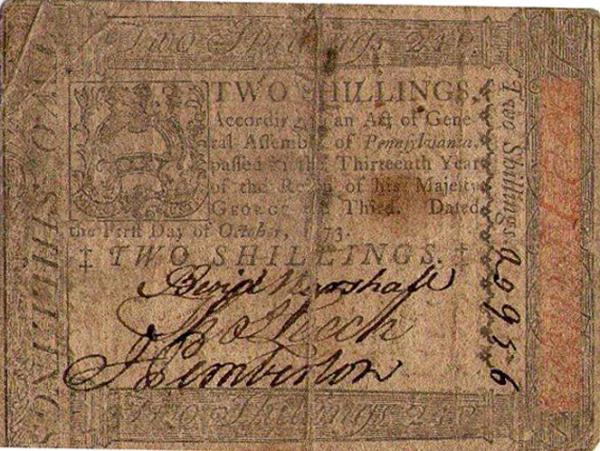 Two Shillings 24d.
TWO SHILLINGS.
According to an Act of Gene-
ral Assembly of Pennsylvania,
passed in the Thirteenth Year
of the Reign of his Majesty
GEORGE the Third. Dated
the First Day of October, 1773.
‡ TWO SHILLINGS. ‡
Benj.
Marshall
Pemberton
Two Shillings 24d.
TWO SHILLINGS
Two Shillings
No 20956